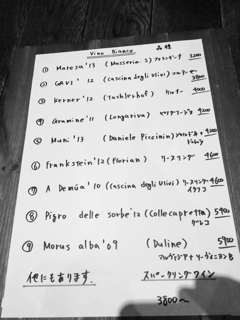 Vino Bianco 品種
① Maresa '13 (Masseria.S) 3200
② GAVI '12 (Cascina degli Ulivi) コルテーゼ 3800
③ Kerner '12 (Tashlerhof) ケルナー 4000
④ Gramine '11 (Longariva) ピノグリージョ 4200
⑤ Muni '13 (Daniele Piccinin) シャルドネ+ 4200
⑥ Frankstein '12 (Florian) リースリング 4600
⑦ A Demúa '10 (Cascina degli Ulivi) リースリング 4600
イタリコ
⑧ Pigro delle sorbe '12 (Collecapretta) 5400
グレコ
⑨ Morus alba '09 (Duline) 5900
マルヴァジア+ソーヴィニヨンB
他にもあります。 スパークリングワイン
3800〜